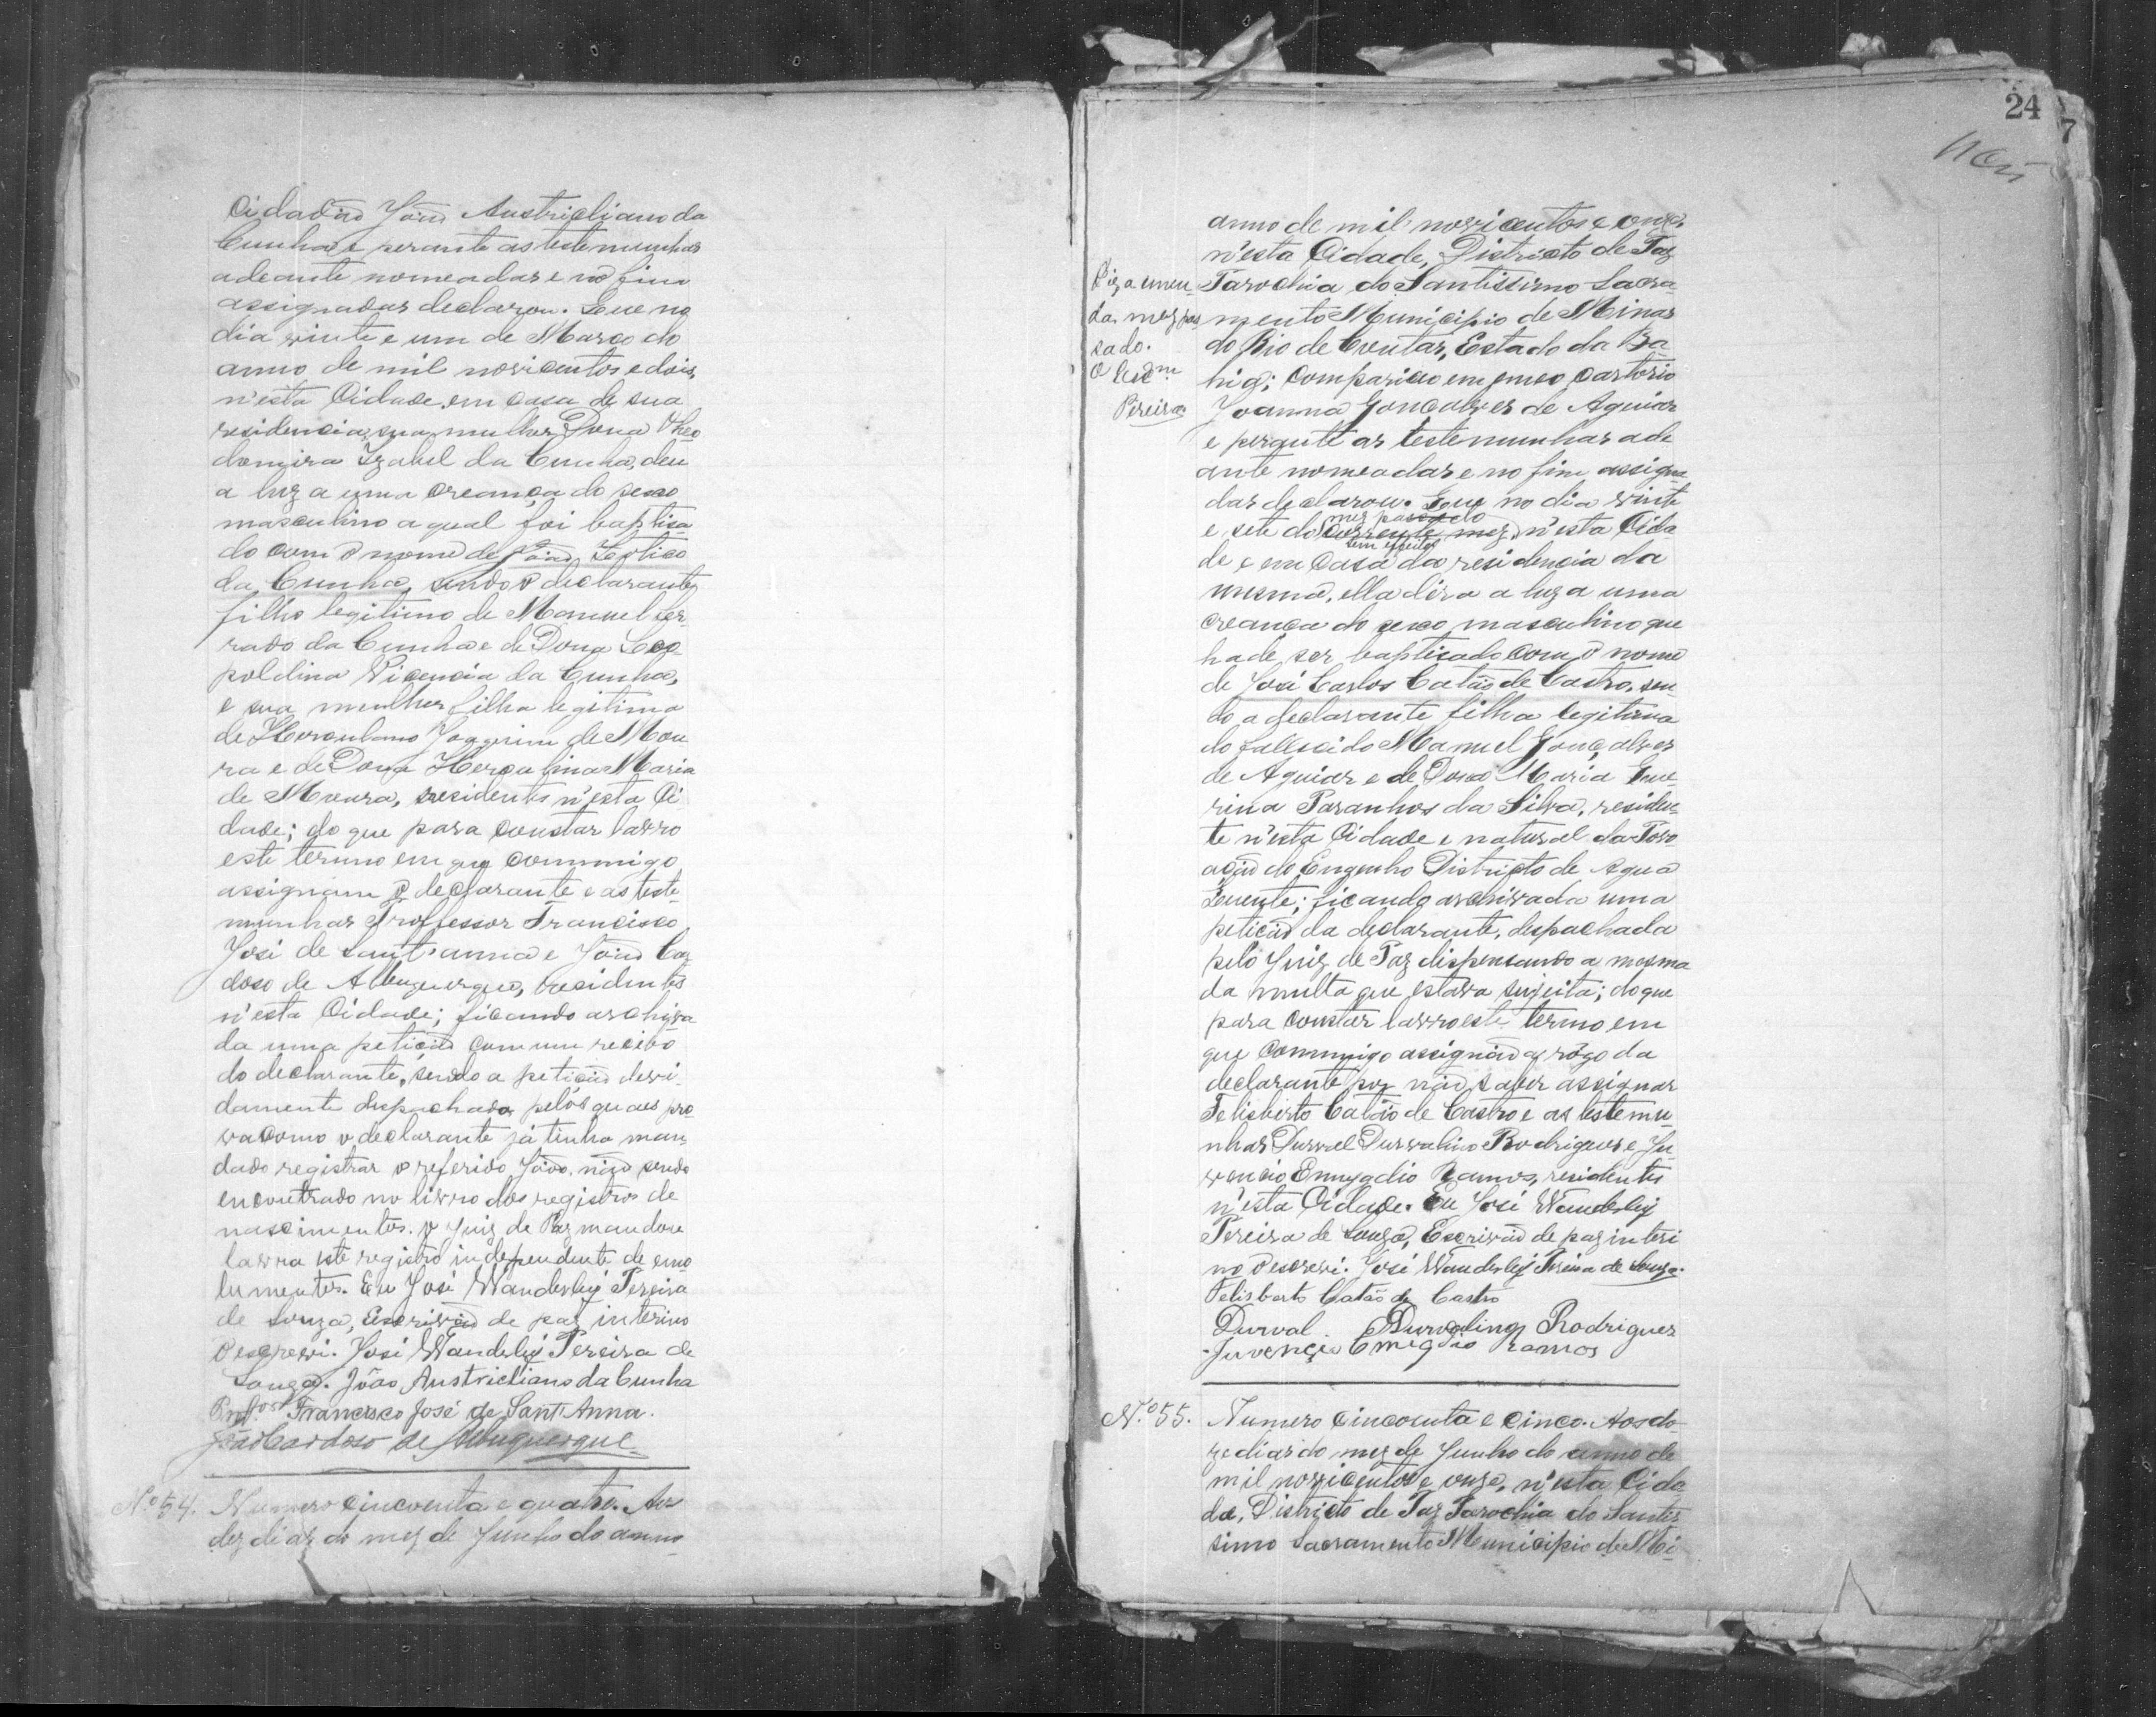 Cidadão João Austricliano da
Cunha e perante as testemunhas
adeante nomeadas e no fim
assignadas declarou. Que no
dia vinte e um de Março do
anno de mil novicentos e dois,
n'esta Cidade, em casa de sua
residencia, sua mulher Dona Theo
domira Izabel da Cunha, deu
a luz a uma creança do sexo
masculino a qual foi baptisa
do com o nome de João
da Cunha, sendo o declarante
filho legitimo de Manuel
rado da Cunha e de Dona Leo
poldina Vicencia da Cunha,
e sua mulher filha legitima
de Herculano Joaquim de Mou
ra e de Dona Herculina Maria
de Moura, residentes n'esta Ci
dade; do que para constar lavro
este termo em que commigo
assignam o declarante e as teste
munhas Professor Francisco
José de Sant'anna e João Car
doso de Albuquerque, residentes
n'esta Cidade; ficando archiva
da uma petição com um recibo
do declarante, sendo a petição devi
damente despachada pelos quaes pro
va como o declarante já tinha man
dado registrar o referido João, não sendo
encontrado no livro dos registros de
nascimentos. o Juiz de Paz mandou
lavra este registro independente de emo
lumentos. Eu José Wanderley Pereira
de Souza, Escrivão de paz interino
o escrevi. José Wanderley Pereira de
Souza. João Austricliano da Cunha
Prof.or Francisco José de Sant'Anna.
João Cardoso de Albuquerque
N.o 54. Numero cincoenta e quatro. Aos
dez dias do mez de Junho do anno
24
7
anno de mil novicentos e onze,
n'esta Cidade, Districto de Paz
Parochia do Santissimo Sacra
mento Municipio de Minas
do Rio de Contas, Estado da Ba
hia; compariceo em meo cartorio
Joanna Gonçalves de Aguiar
e perante as testemunhas ade
ante nomeadas e no fim assigna
das declarou. Que no dia vinte
mez passado
e sete do corrente mez n'esta Cida
sem effeito
de e em casa da residencia da
mesma, ella dera a luz a uma
creança do sexo masculino que
hade ser baptisado com o nome
de José Carlos Catão de Castro, sen
do a declarante filha legitima
do fallecido Manuel Gonçalves
de Aguiar e de Dona Maria
rina Paranhos da Silva, residen
te n'esta Cidade e natural da Povo
ação do Engenho Districto de Agua
Quente; ficando archivada uma
petição da declarante, despachada
pelo Juiz de Paz dispensando a mesma
da multa que estava sujeita; do que
para constar lavro este termo em
que commigo assignão a rogo da
declarante por não saber assignar
Felisberto Catão de Castro e as testemu
nhas Durval Durvalino Rodrigues e Ju
vencio Emygdio Ramos, residentes
n'esta Cidade. Eu José Wanderley
Pereira de Souza, Escrivão de paz interi
no o escrevi. José Wanderley Pereira de Souza.
Felisberto Catão de Castro
Durval Durvalino Rodrigues
Juvencio Emigdio Ramos
Diz a emen
da mez pas
sado.
O Escm
Pereira
N.o 55. Numero cincoenta e cinco. Aos do
ze dias do mez de Junho do anno de
mil novicentos e onze, n'esta Cida
de, Districto de Paz Parochia do Santis
simo Sacramento Municipio de Mi